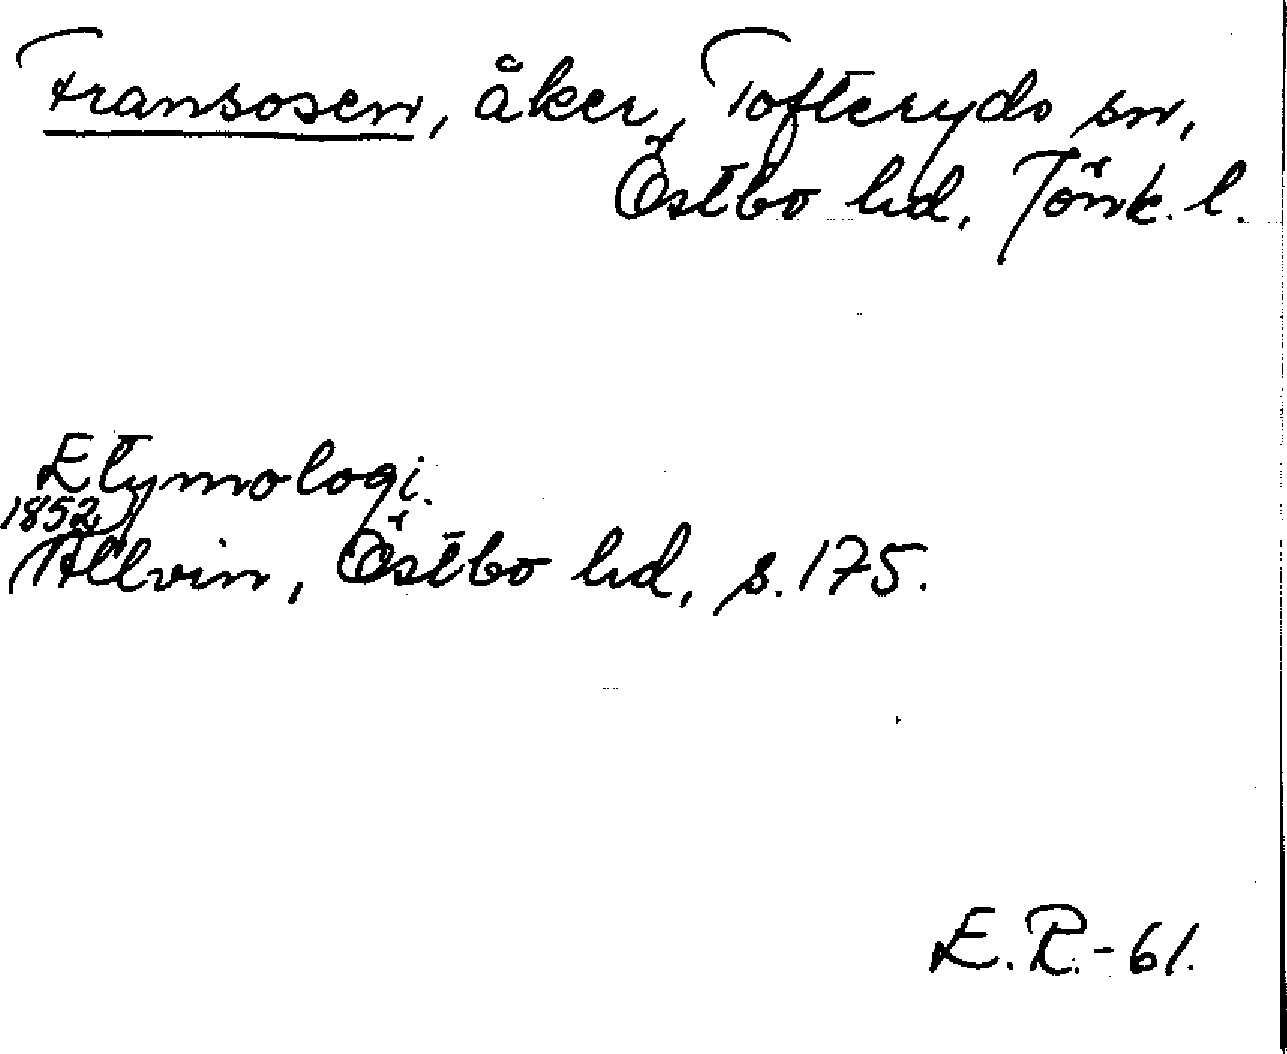 Fransosen, åker, Tofteryds sn,
Östbo hd, Jönk. l.
Etymologi.
1852
Allvin, Östbo hd, s. 175.
E. R. - 61.